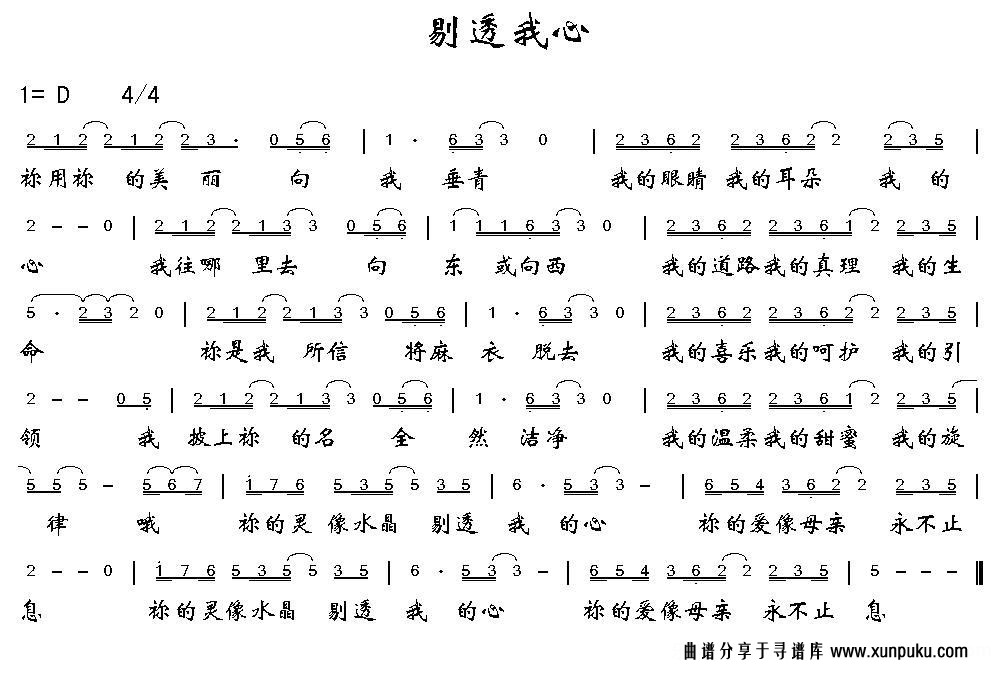 剔透我心
1= D 4/4
2 1 2 2 1 2 2 3 · 0 5 6 | 1 · 6 3 3 0 | 2 3 6 2 2 3 6 2 2 2 3 5 |
祢用祢 的美 丽 向 我 垂青 我的眼睛 我的耳朵 我 的
2 - - 0 | 2 1 2 2 1 3 3 0 5 6 | 1 1 1 6 3 3 | 2 3 6 2 2 3 6 1 2 2 3 5 |
心 我往哪 里去 向 东 或向西 我的道路我的真理 我的生
5 · 2 3 2 0 | 2 1 2 2 1 3 3 0 5 6 | 1 · 6 3 3 0 | 2 3 6 2 2 3 6 2 2 2 3 5 |
命 祢是我 所信 将麻 衣 脱去 我的喜乐我的呵护 我的引
2 - - 0 5 | 2 1 2 2 1 3 3 0 5 6 | 1 · 6 3 3 0 | 2 3 6 2 2 3 6 1 2 2 3 5 |
领 我 披上祢 的名 全 然 洁净 我的温柔我的甜蜜 我的旋
5 5 5 - 5 6 7 | 1 7 6 5 3 5 5 3 5 | 6 · 5 3 3 - | 6 5 4 3 6 2 2 2 3 5 |
律 哦 祢的灵 像水晶 剔透 我 的心 祢的爱像母亲 永不止
2 - - 0 | 1 7 6 5 3 5 5 3 5 | 6 · 5 3 3 - | 6 5 4 3 6 2 2 2 3 5 | 5 - - - ‖
息 祢的灵像水晶 剔透 我 的心 祢的爱像母亲 永不止 息
曲谱分享于寻谱库 www.xunpuku.com